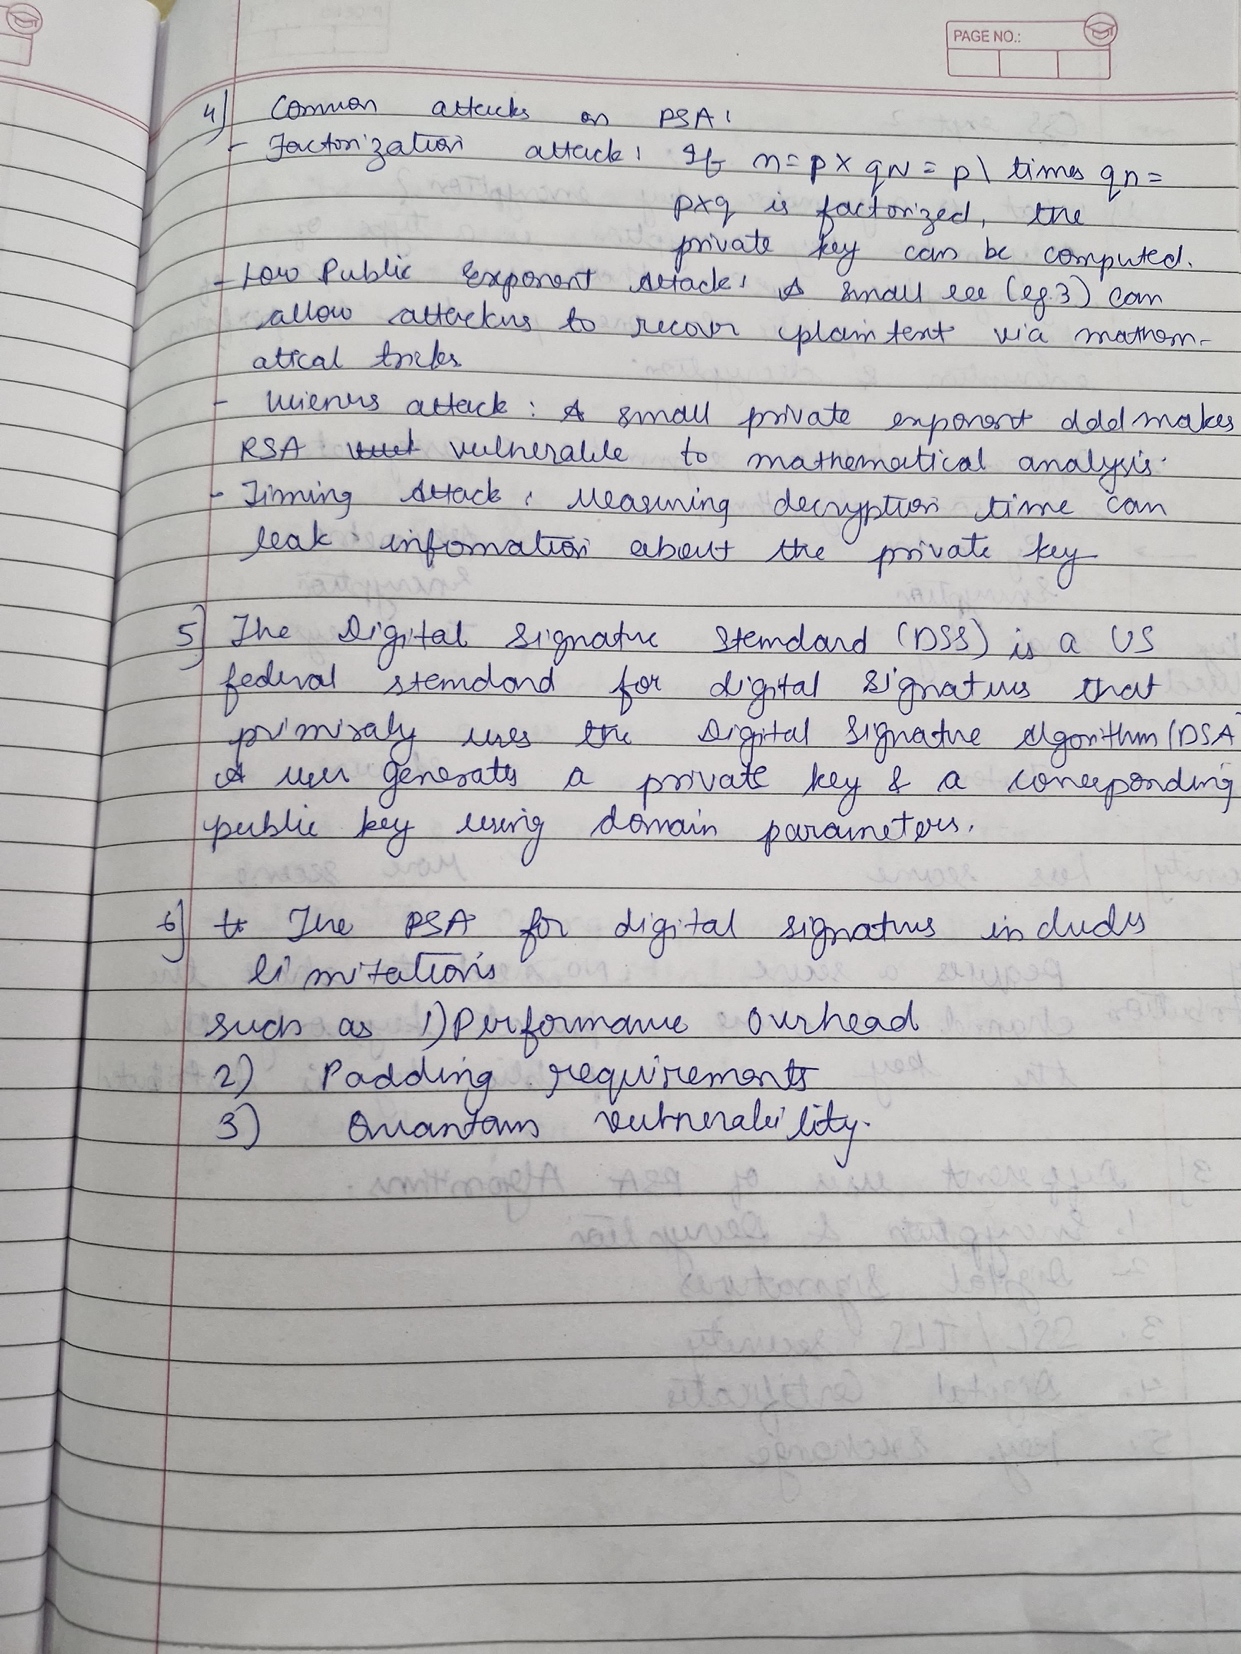 PAGE NO.:
4] Common attacks on RSA:
- Factorization attack: If n=p×qN=p\ times qn=
p×q is factorized, the
private key can be computed.
- Low Public Exponent Attack: A small ee (eg.3) can
allow attackers to recover plaintext via mathem-
atical tricks
- Wieners attack: A small private exponent ddd makes
RSA vulnerable to mathematical analysis.
- Timing Attack: Measuring decryption time can
leak infomation about the private key
5] The Digital Signature Standard (DSS) is a US
federal standard for digital signatures that
primiraly uses the Digital Signature Algorithm (DSA
A user generates a private key & a corresponding
public key using domain parameters.
6] The RSA for digital signatures includes
limitations
such as 1) Performance Overhead
2) Padding requirements
3) Quantum vulnerability.